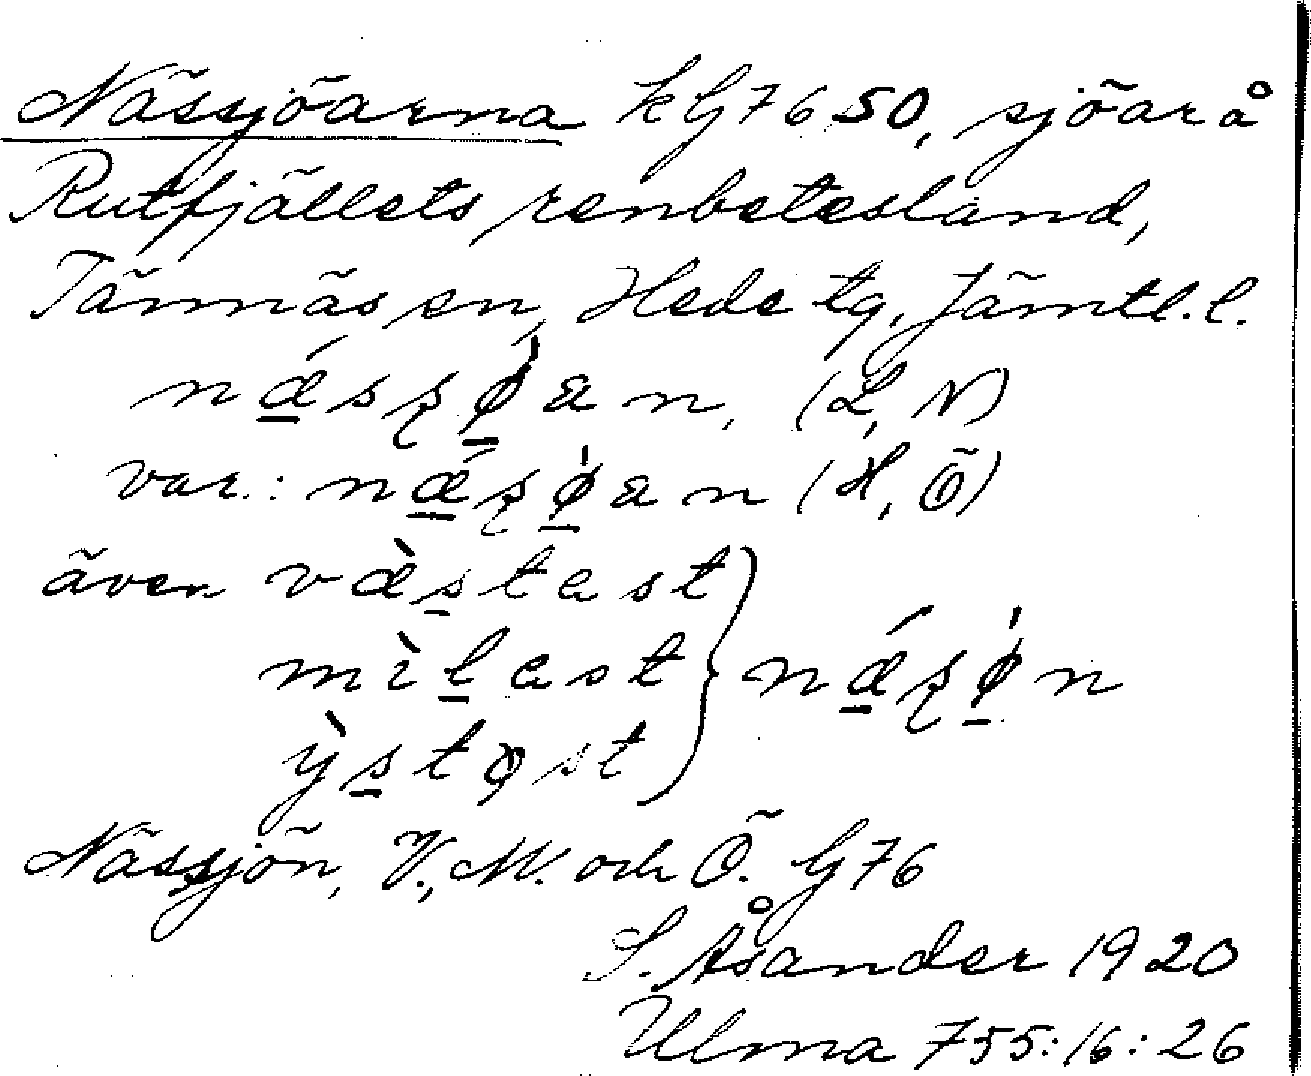 Nässjöarna kG7650, sjöar å
Rutfjällets renbetesland,
Tännäs sn, Hede tg, Jämtl. l.
(L, N)
var.: (H, Ö)
även væ̀stast
mìlast
ỳst st
Nässjön, V., M. och Ö. G76
S. Åsander 1920
Ulma 755:16:26